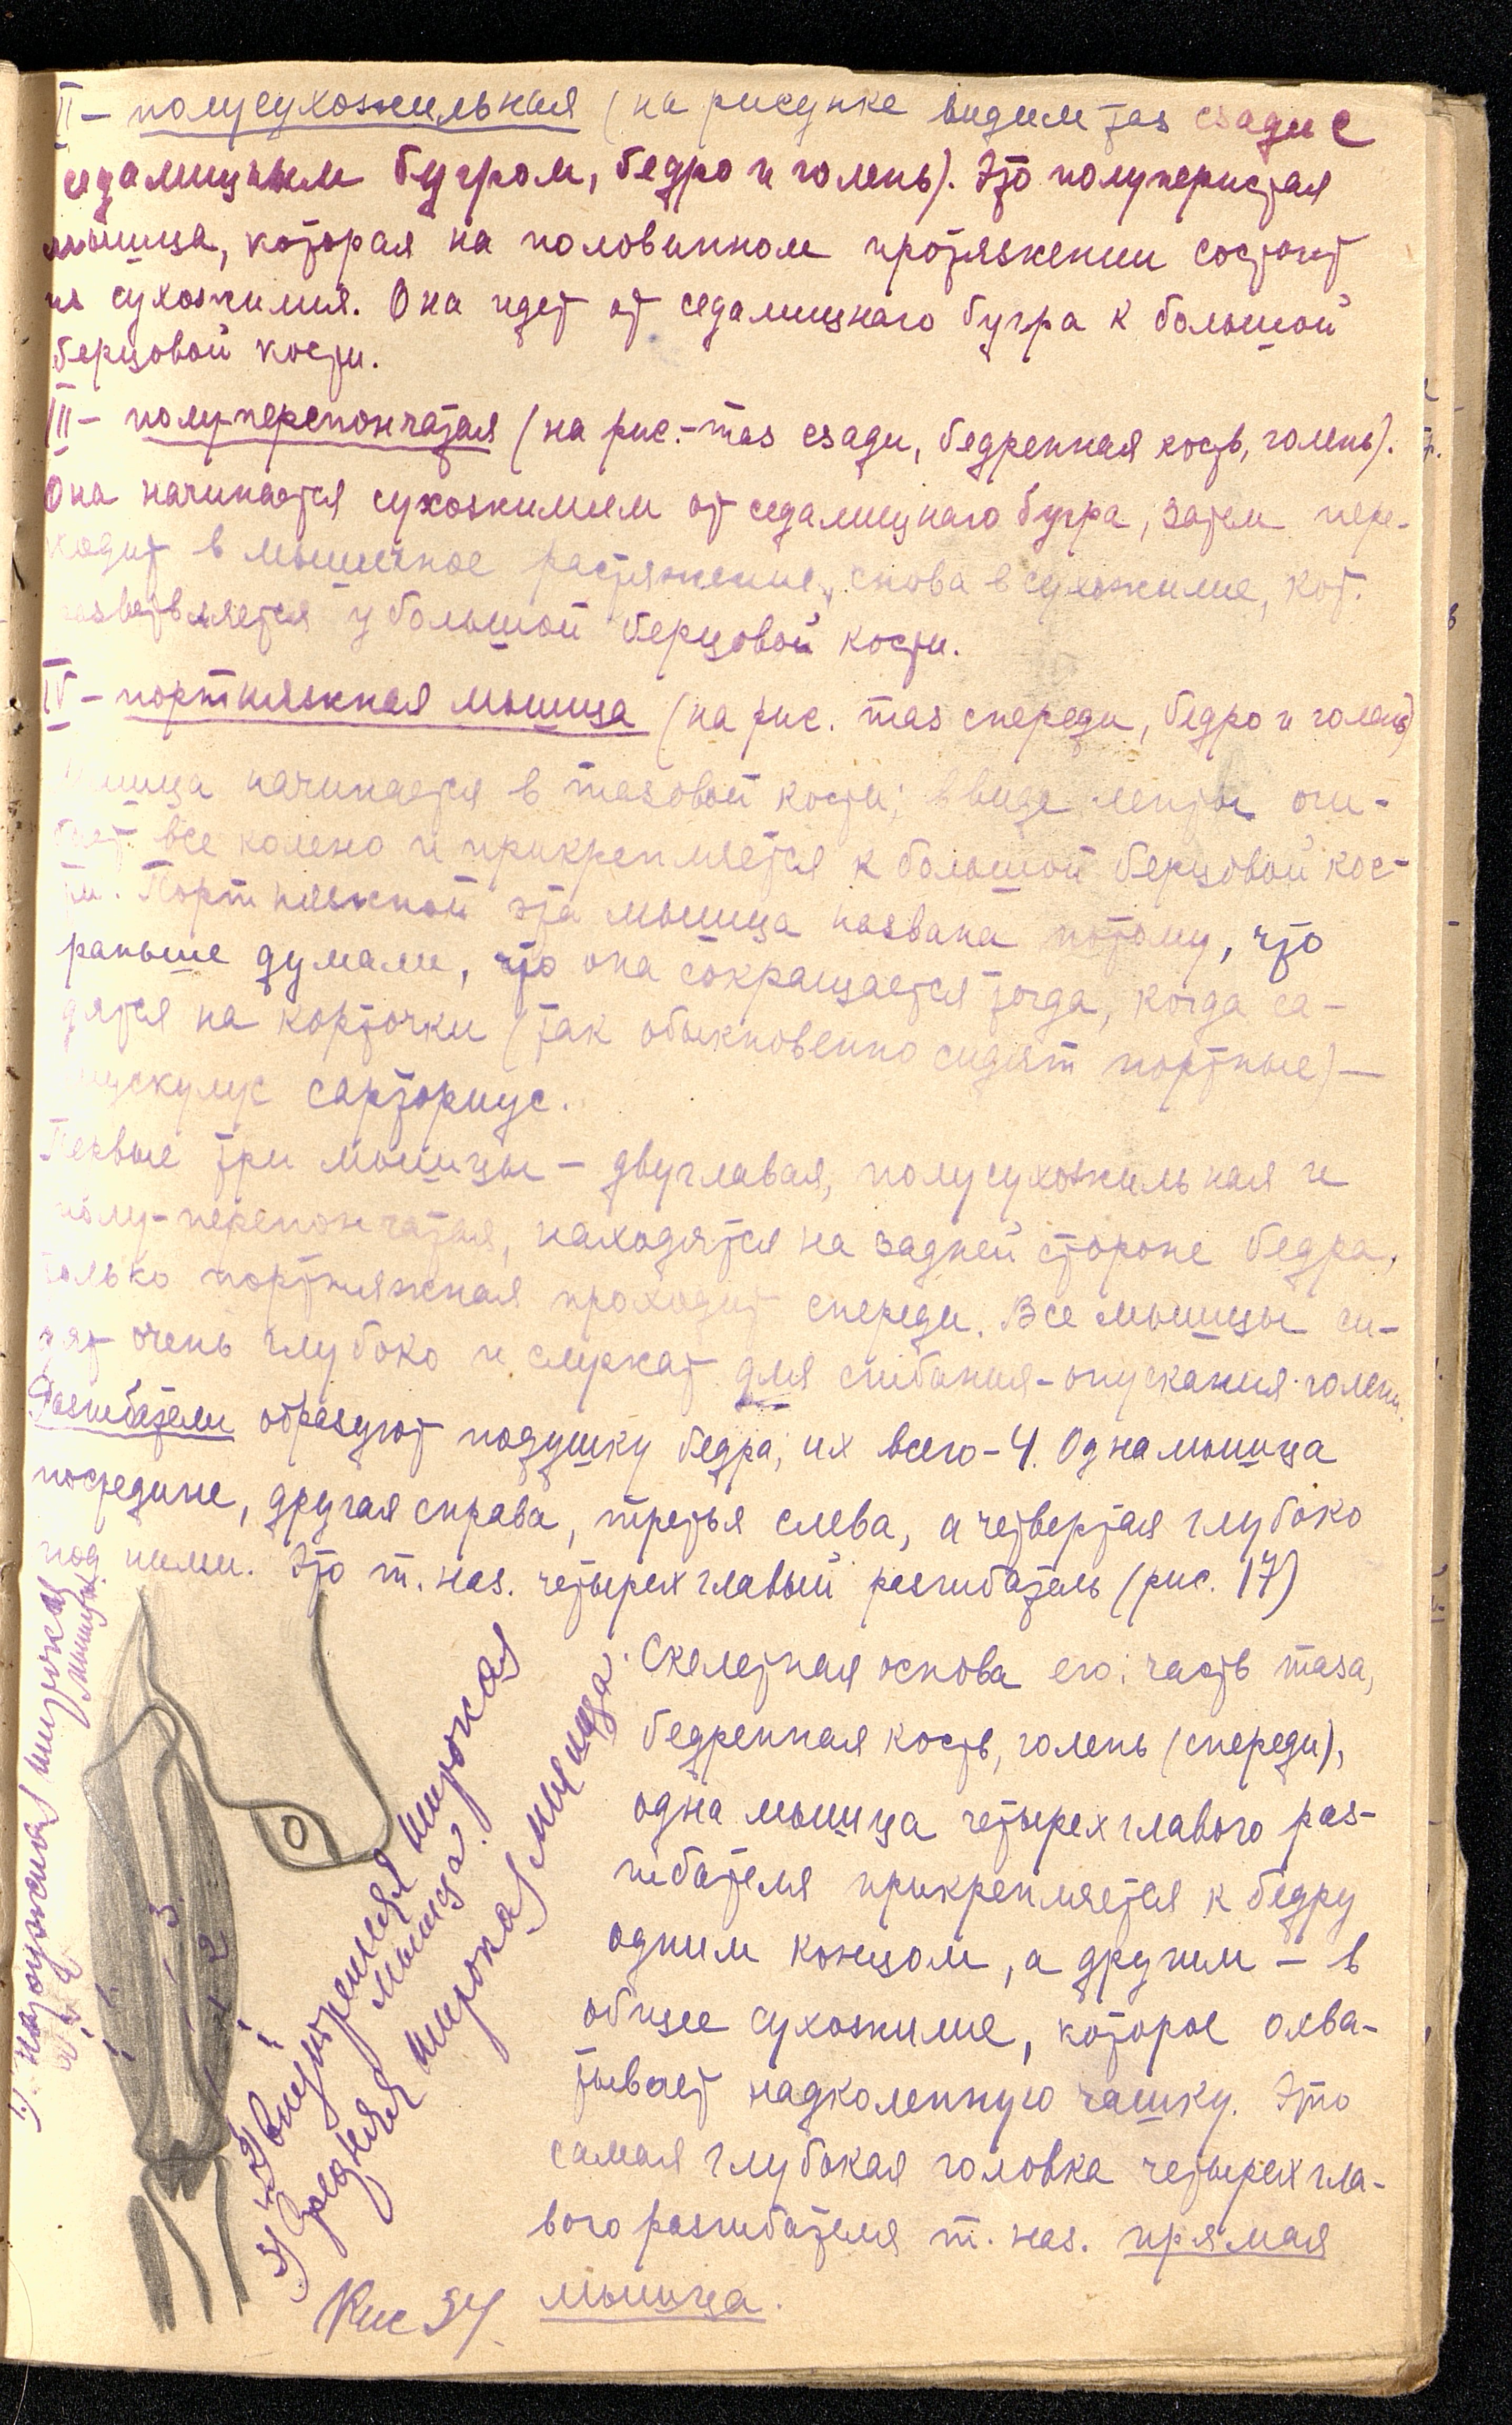 II – полусухожильная (на рисунке видим таз сзади с
седалищным бугром, бедро и голень). Это полуперистая
мышца, которая на половинном протяжении состоит
из сухожилия. Она идет от седалищнаго бугра к большой
берцовой кости.
III – полу-перепончатая (на рис. – таз сзади, бедренная кость, голень).
Она начинается сухожилием от седалищнаго бугра, затем пере-
ходит в мышечное растяжение, снова в сухожилие, кот.
разветвляется у большой берцовой кости.
IV – портняжная мышца (на рис. таз спереди, бедро и голень)
Мышца начинается в тазовой кости; в виде ленты оги-
бает все колено и прикрепляется к большой берцовой кос-
ти. Портняжной эта мышца названа потому, что
раньше думали, что она сокращается тогда, когда са-
дятся на корточки (так обыкновенно сидят портные) –
мускулус сарториус.
Первые три мышцы – двуглавая, полусухожильная и
полу-перепончатая, находятся на задней стороне бедра,
только портняжная проходит спереди. Все мышцы си-
дят очень глубоко и служат для сгибания-опускания голени.
Разгибатели образуют подушку бедра; их всего – 4. Одна мышца
посредине, другая справа, третья слева, а четвертая глубоко
под ними. Это т. наз. четырехглавый разгибатель (рис. 17)
Скелетная основа его: часть таза,
бедренная кость, голень (спереди),
одна мышца четырехглавого раз-
гибателя прикрепляется к бедру
одним концом, а другим – в
общее сухожилие, которое охва-
тывает надколенную чашку. Это
самая глубокая головка четырехгла-
вого разгибателя т. наз. прямая
мышца.
1) наружная широкая
мышца.
2) внутренняя широкая
мышца.
3) средняя широкая мышца.
1
3
2
Рис 34.